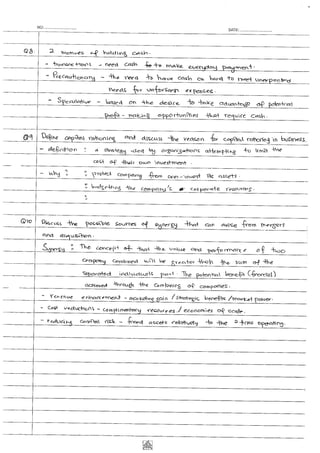 NO.
DATE:
Q8 2 motives of holding cash.
- transactions - need cash to make everyday payment.
- Precautionary - the need to have cash on hand to meet unexpected
needs for unforeseen expenses.
- Speculative - based on the desire to take advantage of potential
profit-making opportunities that require cash.
Q9 Define capital rationing and discuss the reason for capital rationing in business.
- definition : a strategy used by organizations attempting to limit the
cost of their own investment.
- why : : protect company from over-invest its assets.
: budgeting the company's corporate resources.
:
Q10 Discuss the possible sources of synergy that can arise from mergers
and acquisition.
Synergy : The concept of that the value and performance of two
company combined will be greater than the sum of the
separated individuals part. The potential benefit (financial)
achieved through the combining of companies.
- revenue enhancement - marketing gain / strategic benefits / market power.
- cost reductions - complimentary resources / economies of scale.
- reducing capital risk - assets relatively to the 2 firms operating.